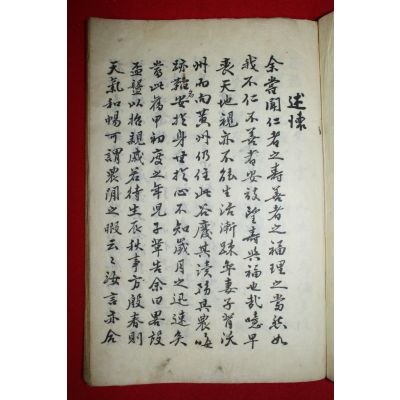 述懷
余嘗聞仁者之壽善者之福理之當然如
我不仁不善者安敢望壽與福也哉噫早
喪天地親亦不能生活漸踈年妻子背汝
州而向黃州仍住此谷廢其讀務其農晦
跡韜名安於身世於心不知歲月之迅速矣
當此舊甲初度之年兒子輩告余曰畧設
盃盤以招親戚若待生辰秋事方殷春則
天氣和暢可謂農閒之暇云云汝言亦合